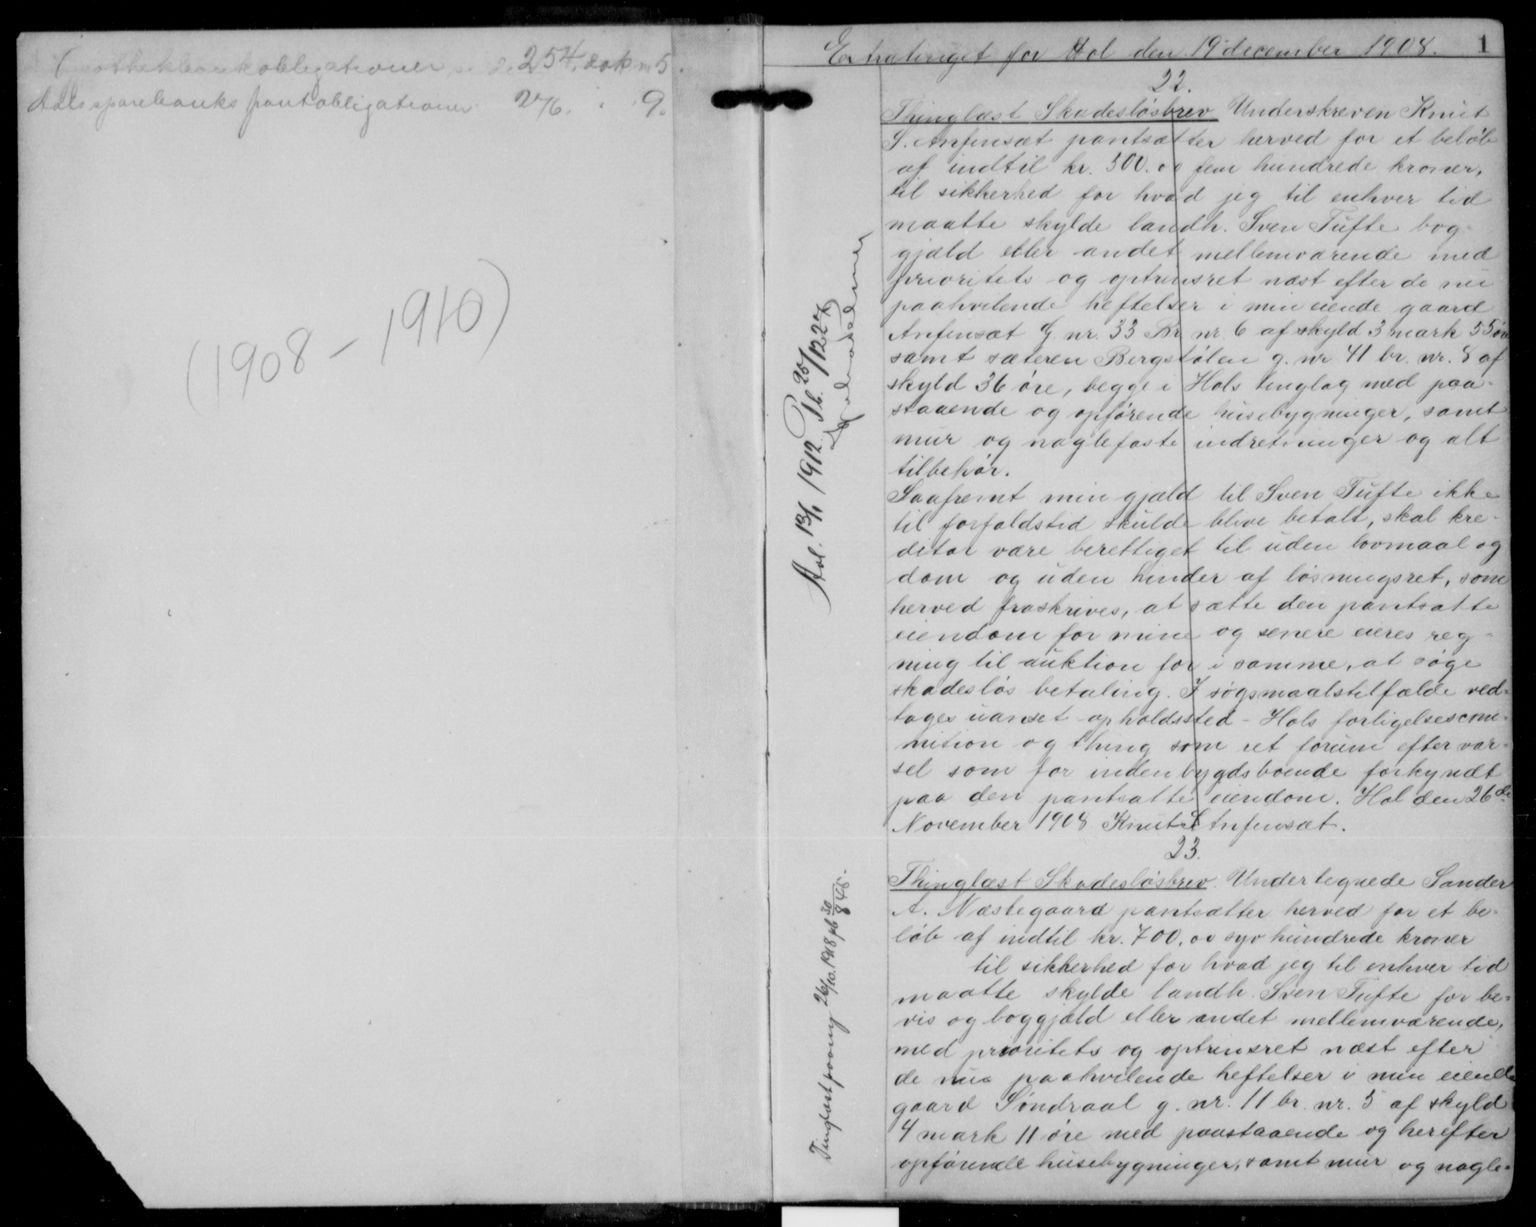 Hypothekbankobligationer se s. 254, dok no 5.
Aals sparebanks pantobligationer 276. " 9.
(1908 – 1910)
Extratinget for Hol den 19de december 1908.
1
22.
Thinglæst Skadesløsbrev Underskreven Knut
S. Anfinsæt pantsætter herved for et beløb
af indtil kr. 500.00 fem hundrede kroner,
til sikkerhed for hvad jeg til enhver tid
maatte skylde landh. Sven Tufte bog-
gjæld eller andet mellemværende med
prioritets og optrinsret næst efter de nu
paahvilende heftelser i min eiende gaard
Anfinsæt G. nr. 33 Br. nr. 6 af skyld 3 mark 55 øre
samt sæteren Bergstølen g. nr 41 br. nr. 8 af
skyld 36 øre, begge i Hols tinglag med paa-
staaende og opførende husebygninger, samt
mur og naglefaste indretninger og alt
tilbehør.
Saafremt min gjæld til Sven Tufte ikke
til forfaldstid skulde blive betalt, skal kre-
ditor være berettiget til uden lovmaal og
dom og uden hinder af løsningsret, som
herved fraskrives, at sætte den pantsatte
eiendom for mine og senere eieres reg-
ning til auktion for i samme, at søge
skadesløs betaling. I søgsmaalstilfælde ved-
tages uanset opholdssted – Hols forligelseskom-
mition og thing som ret forum efter var-
sel som for indenbygdsboende forkyndt
paa den pantsatte eiendom. Hol den 26de
November 1908 Knut S Anfinsæt.
23.
Thinglæst Skadesløsbrev. Undertegnede Sander
A. Næstegaard pantsætter herved for et be-
løb af indtil kr. 700,00 syv hundrede kroner
til sikkerhed for hvad jeg til enhver tid
maatte skylde landh. Sven Tufte for be-
vis og boggjæld eller andet mellemværende,
med prioritets og optrinsret næst efter
de nu paahvilende heftelser i min eiende
gaard Søndraal g. nr. 11 br. nr. 5 af skyld
4 mark 11 øre med paastaaende og herefter
opførende husebygninger, samt mur og nagle-
Avl. 13/1 1912 Pb. 25/1227
26/10 1918 pb 30/848.